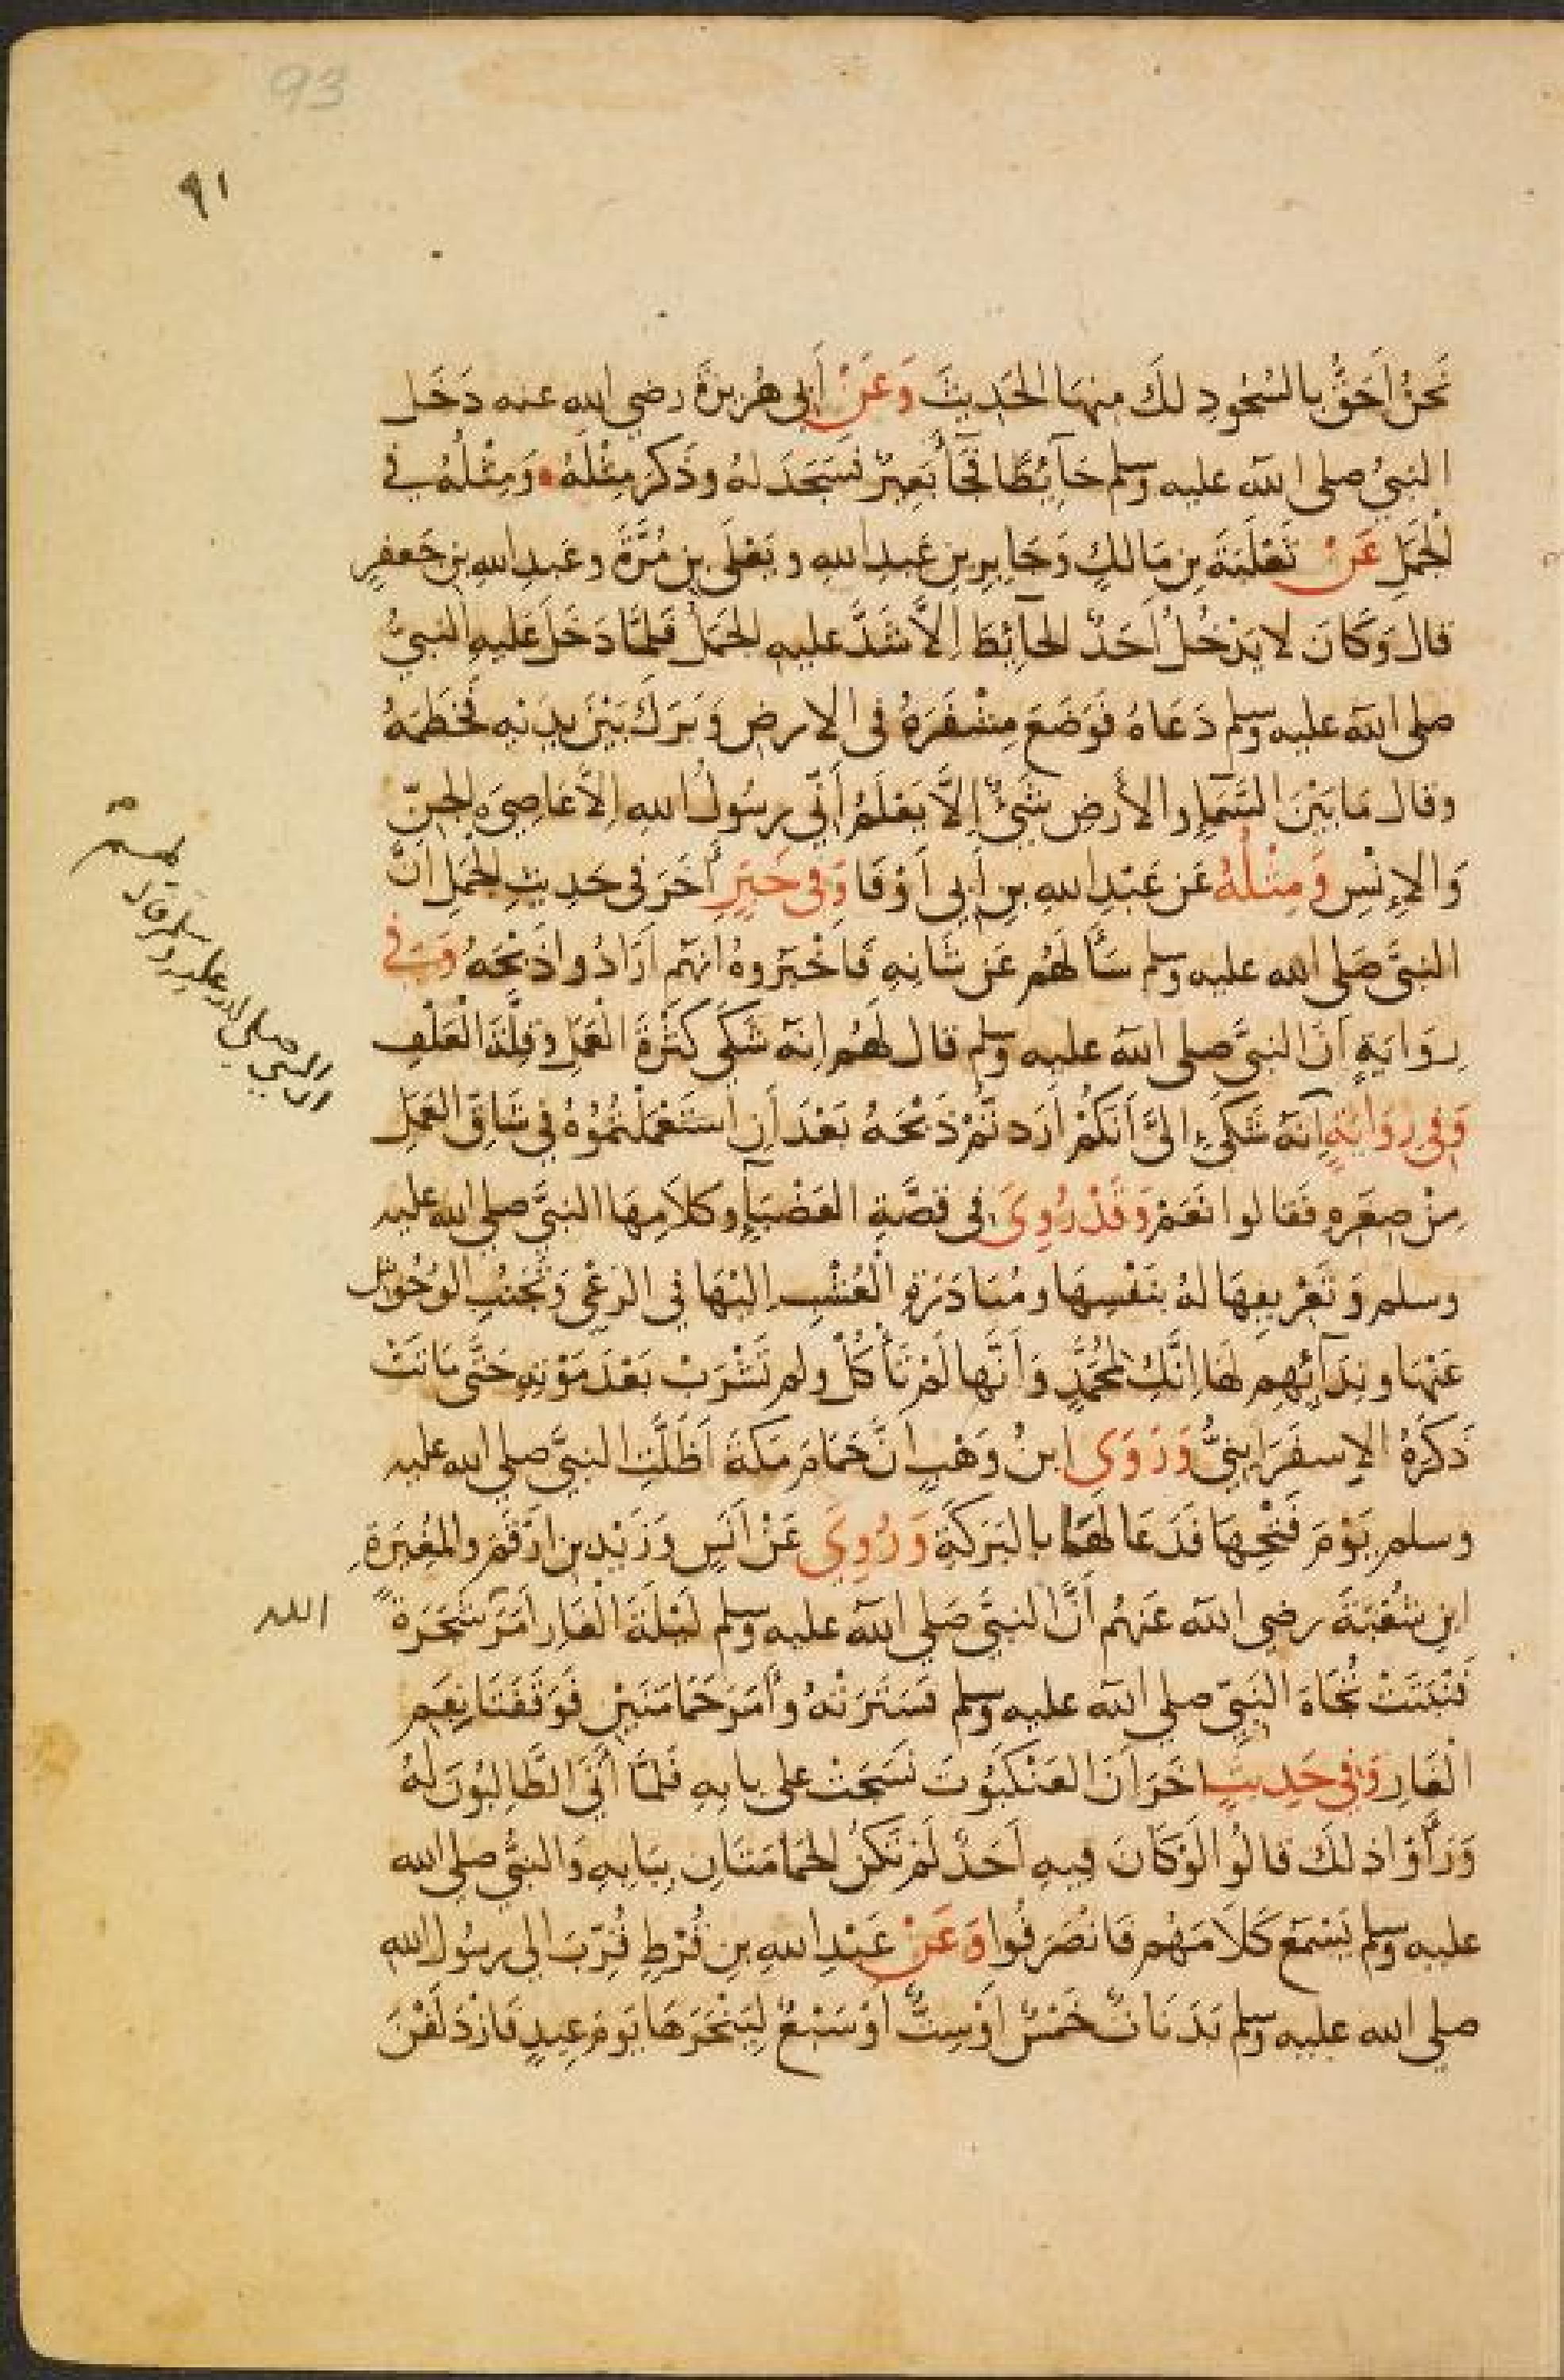 93
٩١
نَحْنُ أَحَقُّ بالسُّجُودِ لكَ مِنهَا الحَدِيثَ وَعَنْ أَبِي هُرَيرَةَ رضي الله عنه دَخَلَ
النبيُّ صلى الله عليه وسلم حَائِطًا فَجَاءَ بَعِيرٌ فَسَجَدَ لهُ وذَكَرَ مِثْلَهُ وَمِثْلُهُ في
الجَمَلِ عَنْ ثَعْلَبَةَ بنِ مَالكٍ وَجَابِرِ بنِ عَبدِ اللهِ ويَعْلَى بنِ مُرَّةَ وعَبدِ اللهِ بنِ جَعفرٍ
قال وَكَانَ لا يَدْخُلُ أَحَدٌ الحَائِطَ إلاَّ شَدَّ عليهِ الجَمَلُ فَلمَّا دَخَلَ عَليهِ النبيُّ
صلى الله عليه وسلم دَعَاهُ فَوَضَعَ مِشْفَرَهُ في الارضِ وَبَرَكَ بَيْنَ يدَيْهِ فخَطَمَهُ
وقال مَا بَيْنَ السَّمَاءِ والأَرضِ شَيْءٌ إِلاَّ يَعْلَمُ أَنِّي رسُولُ اللهِ إلاَّ عَاصِيَ الجِنِّ
وَالإِنْسِ وَمِثْلُهُ عَن عَبْدِ اللهِ بنِ أَبي أَوْفَا وَفي خَبَرٍ أَخَرَ في حَدِيثِ الجَمَلِ انَّ
النبيَّ صَلى الله عليه وسلم سَأَلَهُم عَن شَانِهِ فَاخْبَروهُ انهُم أَرَادُوا ذَبْحَهُ وَفي
رِوَايَةٍ أنَّ النبيَّ صلى الله عليه وسلم قال لَهُم انهُ شَكَى كَثْرَةَ العَمَلِ وقِلَّةَ العَلَفِ
وَفِي رِوَايَةٍ أنهُ شَكَى إلىَّ أَنكُمْ أَرَدتُمْ ذَبْحَهُ بَعْدَ أَنِ اسْتَعْمَلْتُمُوهُ في شَاقِّ العَمَلِ
مِنْ صِغَرِهِ فَقَالوا نَعَمْ وَقَدْ رُوِيَ في قصَّةِ العَضْبَاءِ وكلاَمِهَا النبيَّ صلى الله عليه
وسلم وَتَعْرِيفِهَا لهُ بنَفْسِهَا ومُبَادَرَةِ الْعُشْبِ اليْهَا في الرَعْى وَتَجَنُّبِ الوُحُوشِ
عَنْهَا ونِدَائِهِم لهَا إنَّكِ لمُحَمَّدٍ وَأَنَّها لَمْ تَأْكُلْ ولم تَشْرَبْ بَعْدَ مَوْتِهِ حَتَّى مَاتَتْ
ذَكَرَهُ الإسفَرَاينِيُّ وَرَوَى ابنُ وَهْبٍ انَّ حَمَامَ مَكَّةَ أَظَلَّتِ النبيَّ صلى الله عليه
وسلم يَوْمَ فَتْحِهَا فَدَعَا لهَا بالبَرَكَةِ وَرُوِيَ عَنْ أنَسٍ وَزَيْدِ بنِ أَرْقَمَ والمُغِيرَةِ
ابنِ شُعْبَةَ رضي الله عَنهُم أَنَّ النبيَّ صَلى الله عليه وسلم لَيْلَةَ الغَارِ أَمَرَ شَجَرَةً
الله
فَنَبَتَتْ تُجَاهَ النَّبيِّ صلى الله عليه وسلم فَسَتَرَتْهُ وأَمَرَ حَمَامَتَيْنِ فَوَقَفَتَا بفَمِ
الغَارِ وَفي حَدِيثٍ اخَرَ أَنَّ العَنْكَبُوتَ نَسَجَتْ على بابِهِ فَلمَّا أَتَى الطَّالِبُونَ لهُ
وَرَأَوْا ذلكَ قالُوا لَوْ كَانَ فِيهِ أَحَدٌ لَمْ تَكنُ الحَمَامَتَانِ بِبَابِهِ وَالنبيُّ صلى الله
عليه وسلم يَسْمَع كَلاَمَهُم فَانْصَرَفُوا وَعَنْ عَبْدِ اللهِ بنِ قُرْطٍ قُرِّبَ الى رسُولِ اللهِ
صلى الله عليه وسلم بَدَنَاتٌ خَمْسٌ أَوْ سِتٌّ أَوْ سَبْعٌ لِيَنْحَرَهَا يَومَ عِيدٍ فَازْدَلَفْنَ
ان النبي صلى الله عليه وسلم قال لهم